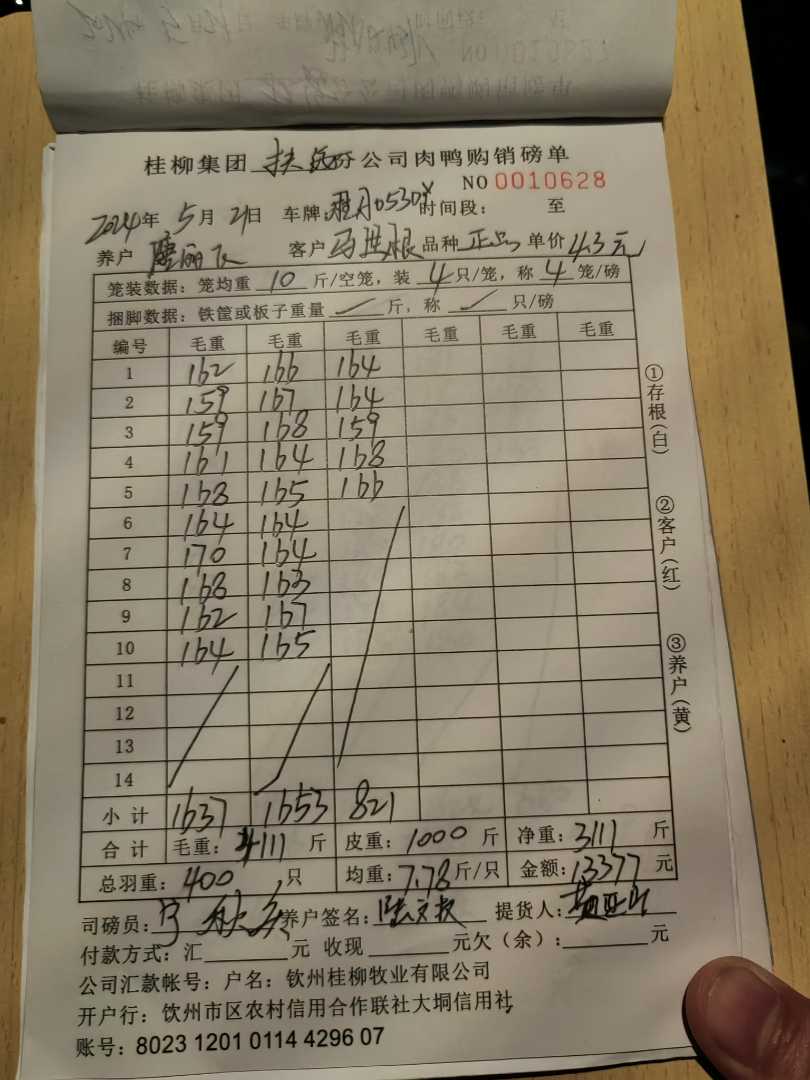 桂柳集团 扶 公司肉鸭购销磅单
NO 0010628
2024年 5月21日 车牌: 0530 时间段: 至
养户 丽 客户 马 根 品种 正品 单价 4.3元
笼装数据: 笼均重 10 斤/空笼, 装 4 只/笼, 称 4 笼/磅
捆脚数据: 铁筐或板子重量 斤, 称 只/磅
编号 毛重 毛重 毛重 毛重 毛重 毛重
1 162 166 164
2 159 167 164
3 159 168 159
4 161 164 168
5 168 165 166
6 164 164
7 170 164
8 168 163
9 162 167
10 164 165
11
12
13
14
小计 1637 1653 821
合计 毛重: 4111 斤 皮重: 1000 斤 净重: 3111 斤
总羽重: 400 只 均重: 7.78 斤/只 金额: 13377 元
司磅员: 养户签名: 提货人:
付款方式: 汇 元 收现 元欠(余): 元
公司汇款帐号: 户名: 钦州桂柳牧业有限公司
开户行: 饮州市区农村信用合作联社大垌信用社
账号: 8023 1201 0114 4296 07
①存根(白)
②客户(红)
③养户(黄)